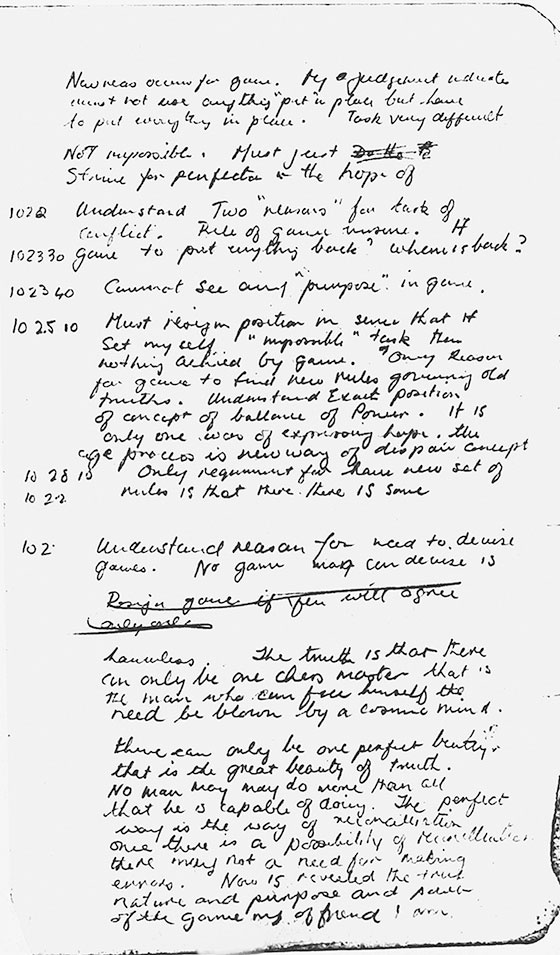 Now reas occurs for game. My judgement indicates
must not use anything "put" in place but have
to put everything in place. Task very difficult
NOT impossible. Must just
Strive for perfection in the hope of
1022 Understand Two "reasons" for task of
conflict. Rule of game unsure. If
102330 game to put anything back? where is back?
102340 Cannot see any "purpose" in game.
10 25 10 Must resign position in sense that if
Set myself "impossible" task then
nothing achived by game. Only Reason
for game to find new rules governing old
truths. Understand Exact position
of concept of ballance of Power. It is
only one way of expressing hope. the
age process is new way of dispair concept
10 28 10 Only requirment for have new set of
10 2 rules is that there. there IS some
102 Understand reason for need to devise
games. No game man can devise is
Resign game if you will agree
harmless. The truth is that there
can only be one chess master that is
the man who can free himself the
need be blown by a cosmic mind.
there can only be one perfect beauty
that is the great beauty of truth.
No man may may do more than all
that he is capable of doing. The perfect
way is the way of reconciliation
once there is a possibility of reconciliation
there may not a need for making
errors. Now is revealed the true
nature and purpose and power
of the game my offend I am